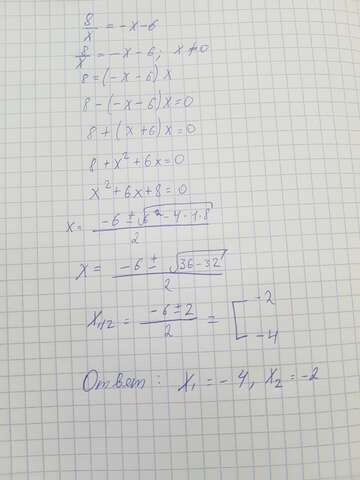 8/x = -x-6
8/x = -x-6; x≠0
8=(-x-6)x
8-(-x-6)x=0
8+(x+6)x=0
8+x²+6x=0
x²+6x+8=0
x= (-6±√(6²-4·1·8))/2
x = (-6±√(36-32))/2
x₁,₂ = (-6±2)/2 = [-2
-4
Ответ: x₁=-4, x₂=-2